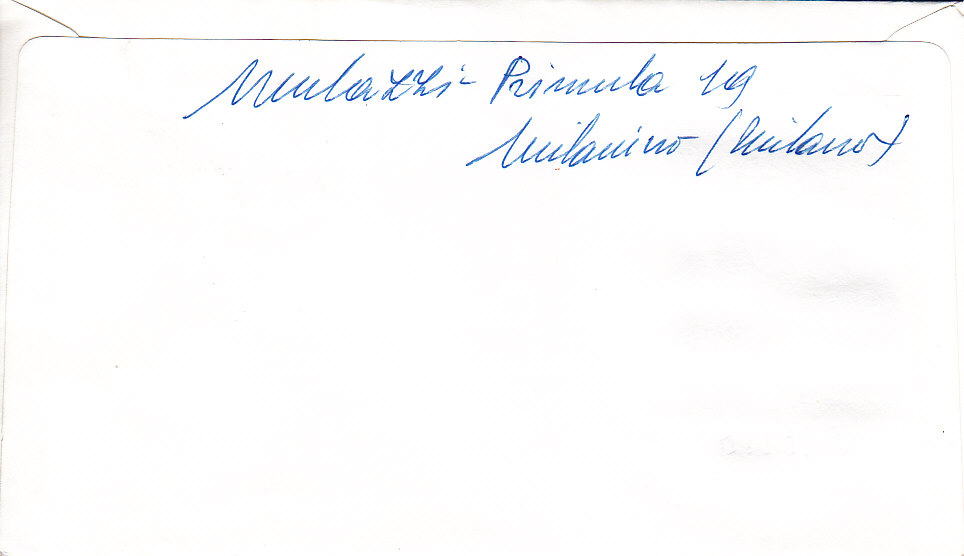 Mulazzi - Primula 19
Milanino (Milano)